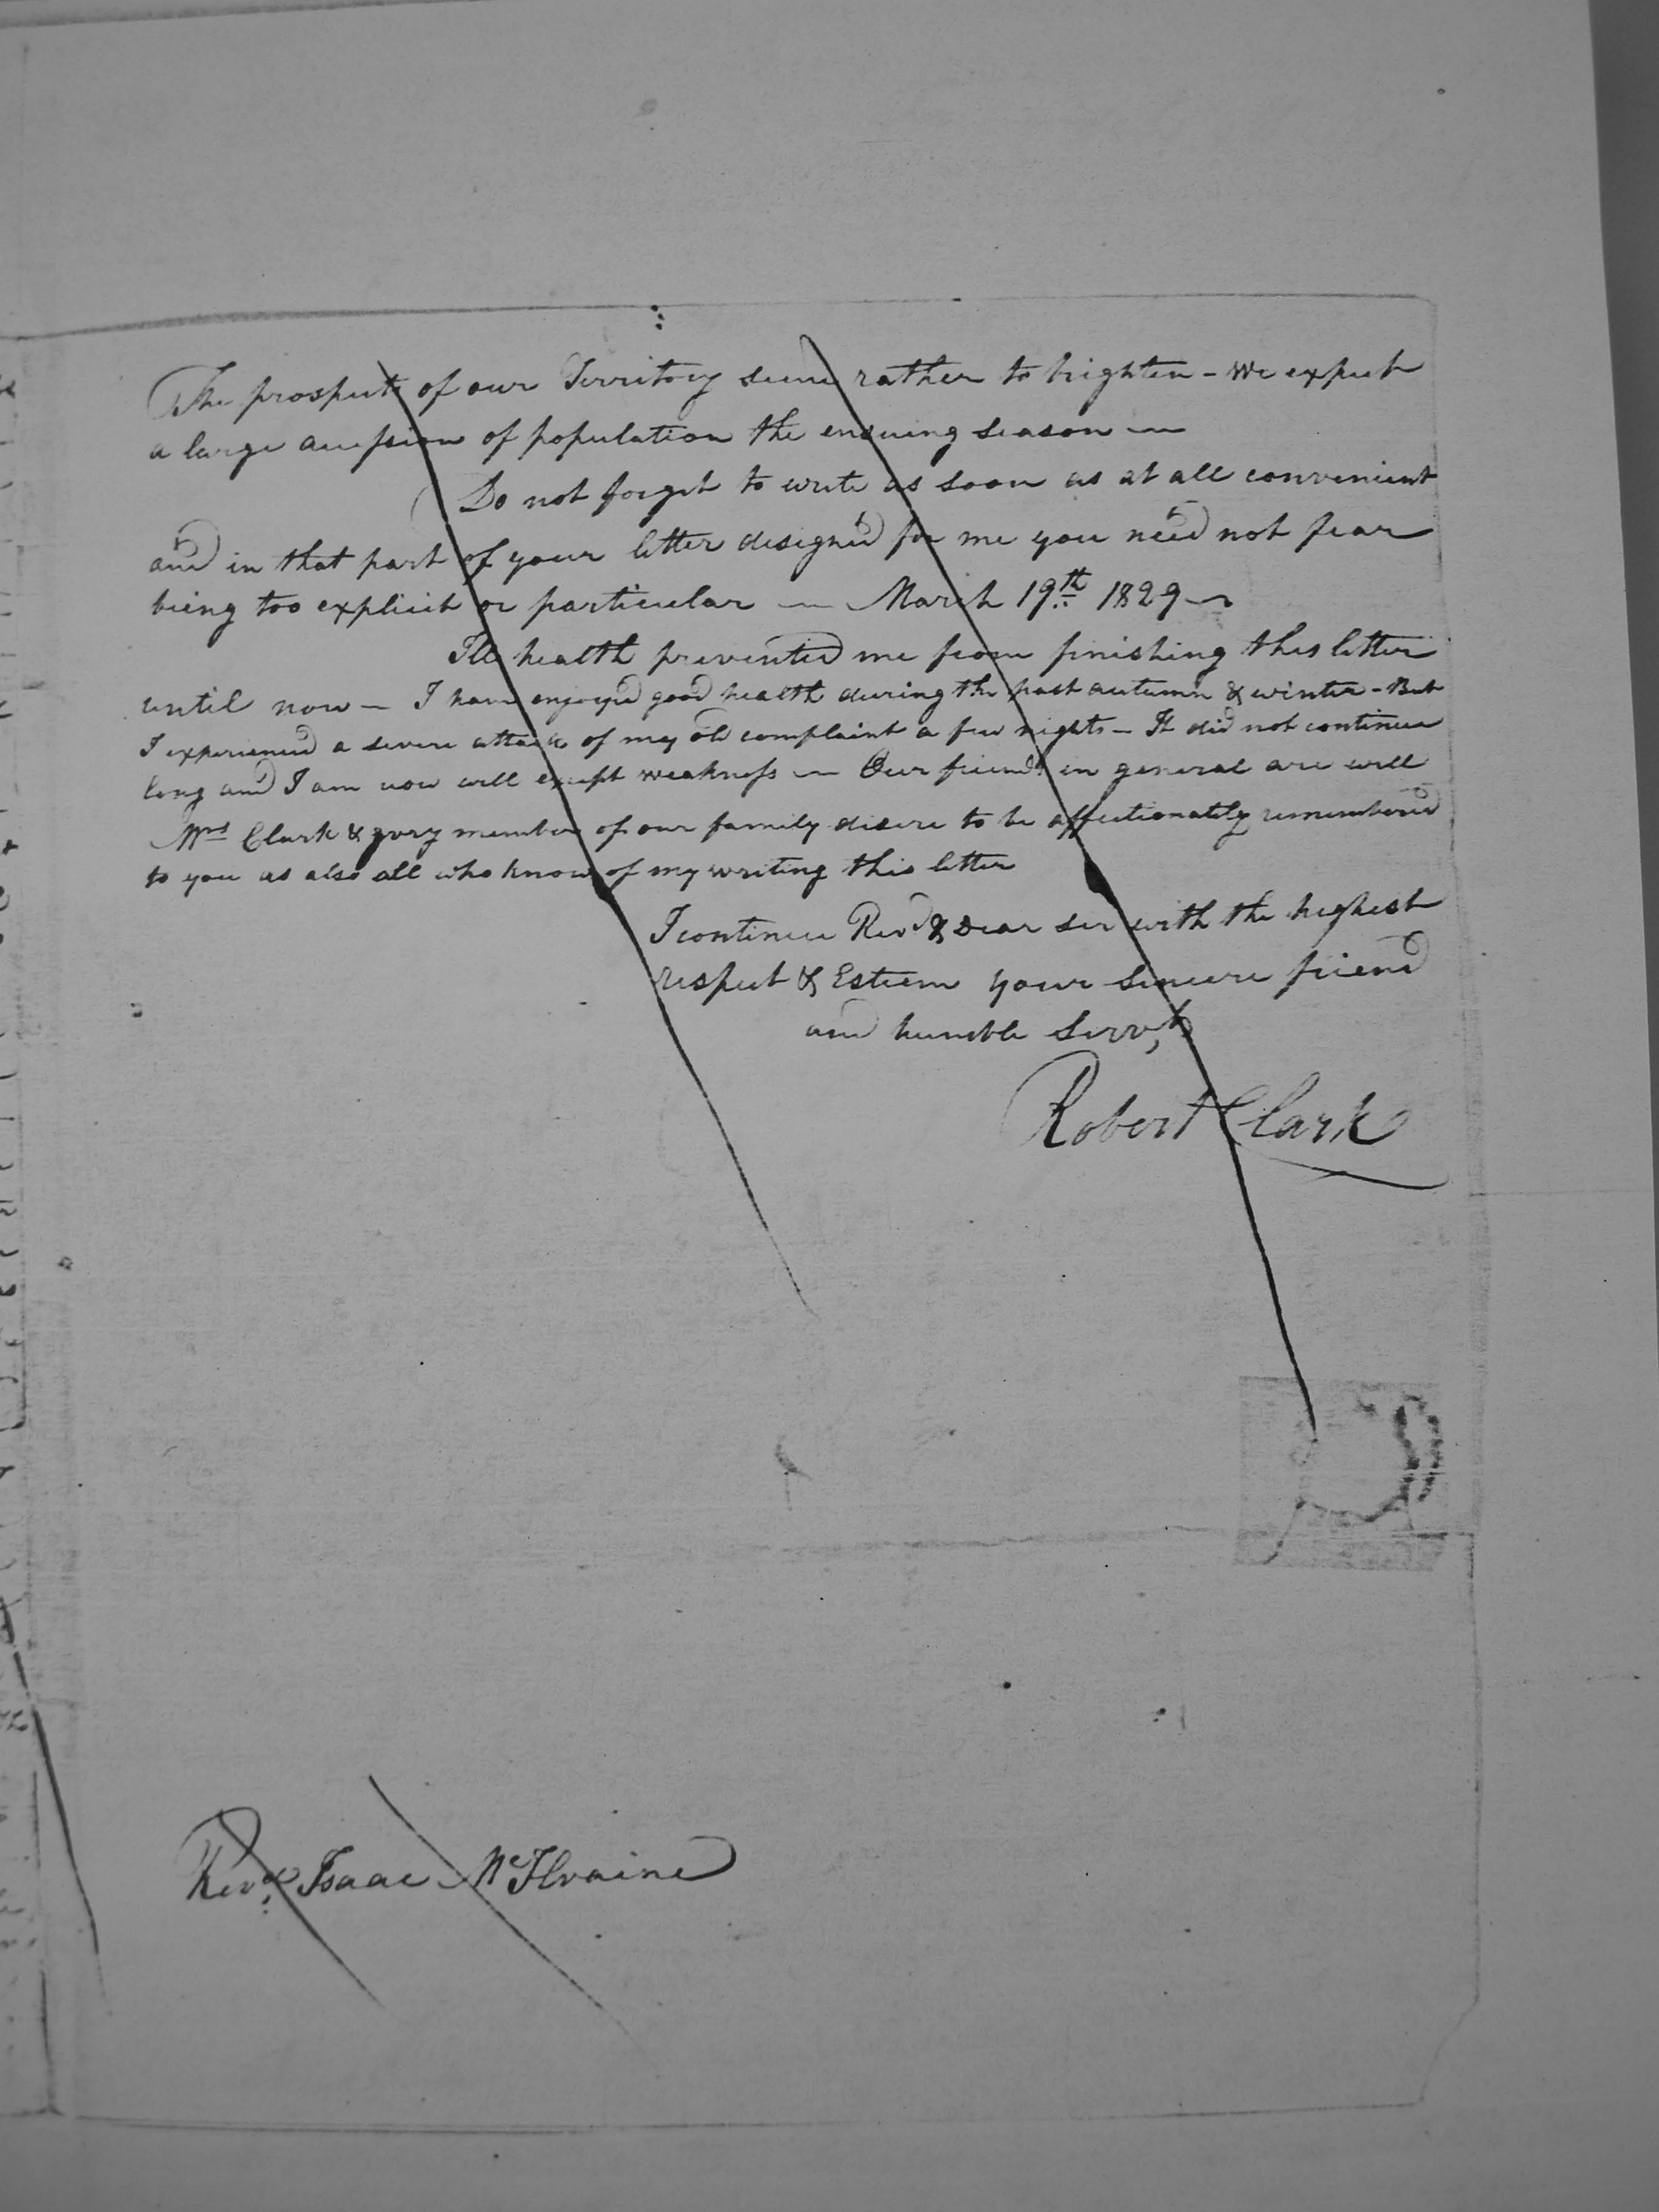 The prospects of our Territory seem rather to brighten - We expect
a large accession of population the ensuing season —
Do not forget to write as soon as at all convenient
and in that part of your letter designed for me you need not fear
being too explicit or particular — March 19th 1829 —
Ill health prevented me from finishing this letter
until now — I have enjoyed good health during the past autumn & winter - But
I experienced a severe attack of my old complaint a few nights — It did not continue
long and I am now well except weakness — Our friends in general are well
Mrs Clark & every member of our family desire to be affectionately remembered
to you as also all who know of my writing this letter
I continue Revd & Dear Sir with the highest
respect & Esteem your sincere friend
and humble Servt
Robert Clark
Revd Isaac McIlvaine